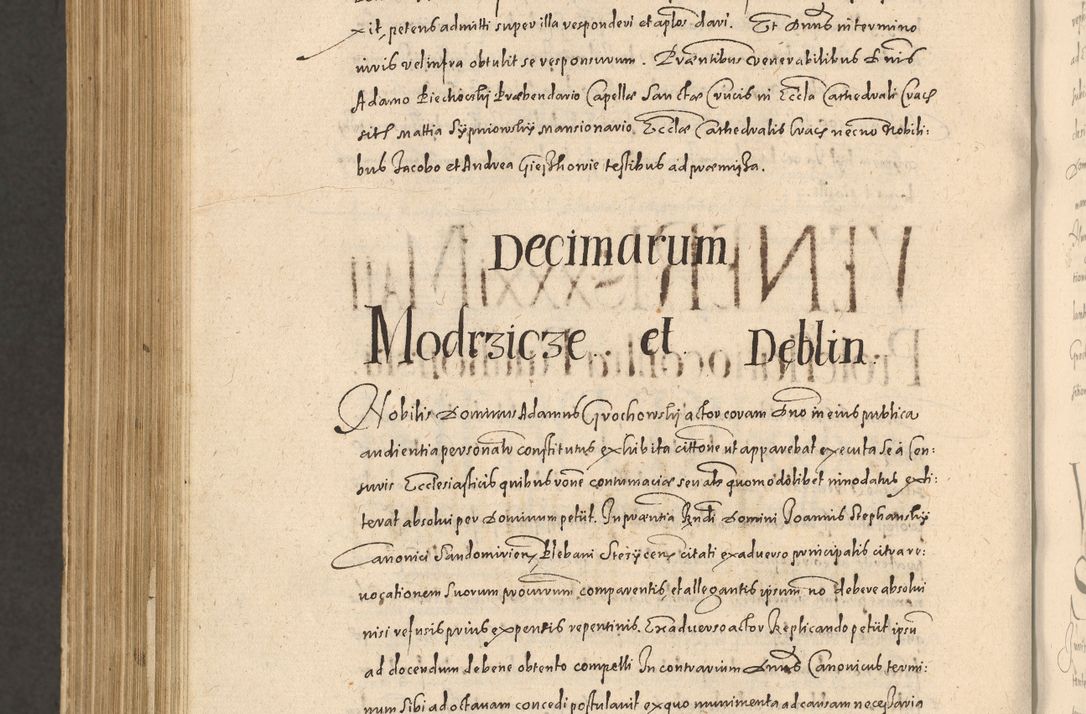 xit, petens admitti super illa responderi et aplos dari. Et Dnus in termino
iuris vel infra obtulit se responsurum. Præntibus venerabilibus Dnis
Adamo Piechocskj Præbendario Capellæ Sanctæ Crucis in Eccla Cathedrali Crac
Mattia Sypniowskÿ mansionario Ecclæ Cathedralis Crac necno Nobili:
bus Jacobo et Andrea testibus ad præmissa.
Decimarum
Modrzicze et Deblin.
Nobilis Dominus Adamus Grochowskj actor coram Dno in eius publica
audientia personalr constitutus exhibita cittone ut apparebat executa se à Cen:
suris Ecclesiasticis quibus rone contumaciæ seu als quomodolibet innodatus exti:
terat absolui per Dominum petiit. In præntia Rndi Domini Joannis Stephanskÿ
Canonici Sandomirien Plebani citati ex aduerso principalis citra re:
uocationem suorum procurum comparentis, et allegantis ipsum no debere absolui
nisi refusis prius expensis repentinis. Ex aduerso actor Replicando petiit ipsu
ad docendum debene obtento compelli In contrarium Dnus Canonicus termi:
num sibi ad octauam concedi postulauit ex quo munimenta ad causam necessaria